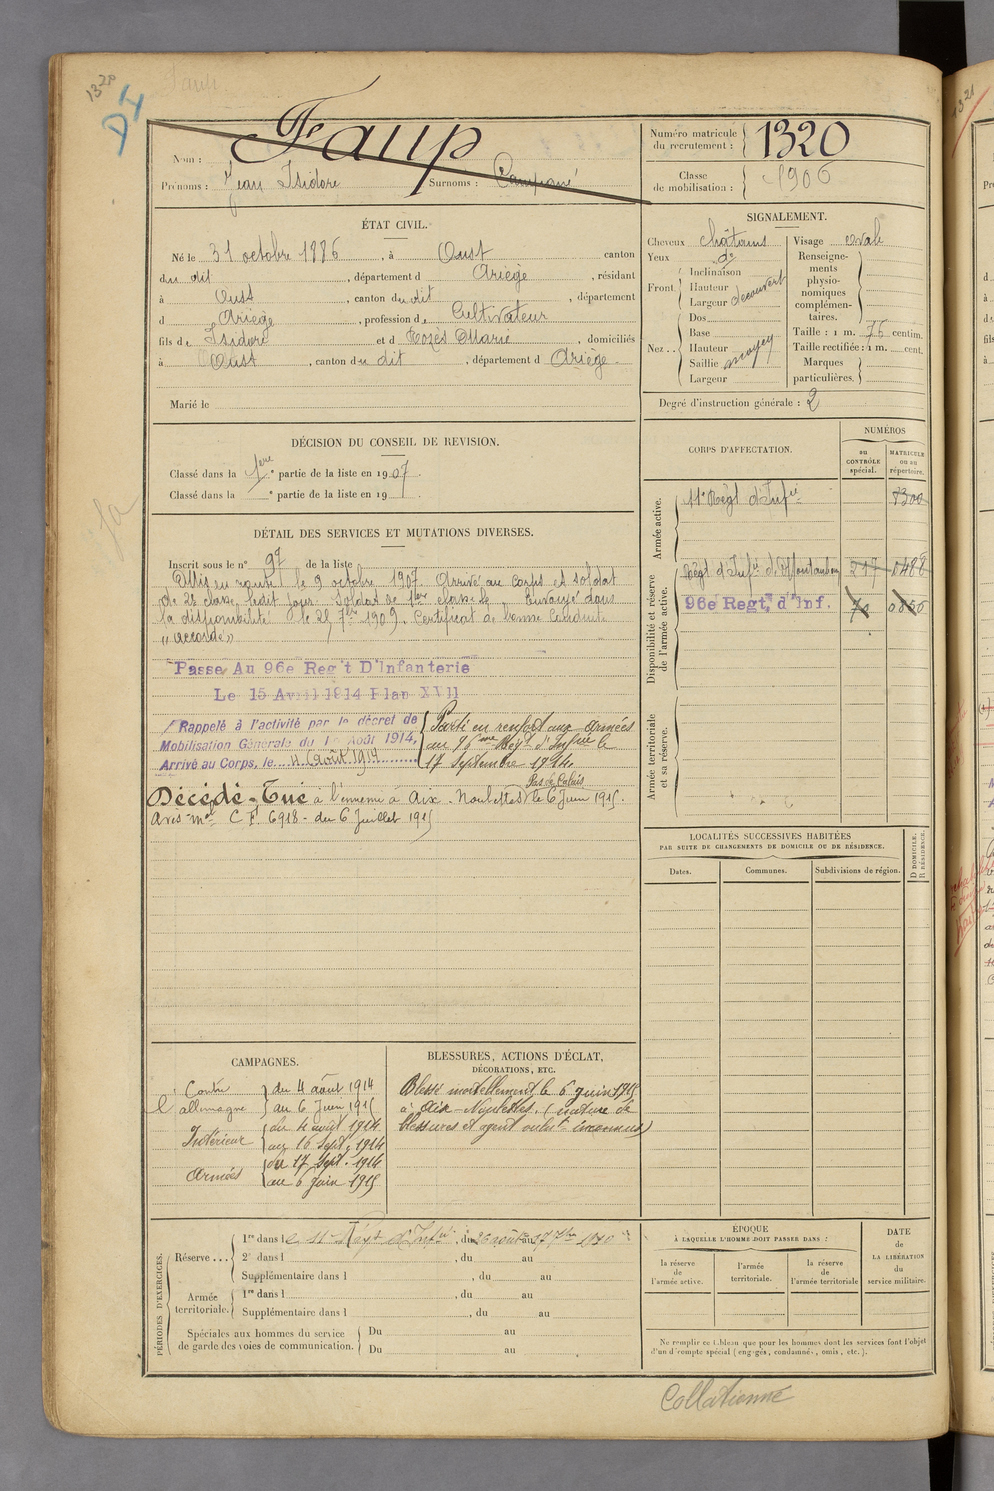 1320
Faup
Nom :
Prénoms : Jean Isidore Surnoms :
Numéro matricule du recrutement : 1320
Classe de mobilisation : 1906
ÉTAT CIVIL.
Né le 31 octobre 1886, à Oust canton
du dit, département d Ariège, résidant
à Oust, canton du dit, département
d Ariège, profession de Cultivateur
fils de Isidore et d Marie, domiciliés
à Oust, canton du dit, département d Ariège.
Marié le
SIGNALEMENT.
Cheveux châtains
Yeux do
Front Inclinaison
Hauteur
Largeur découvert
Nez Dos
Base
Hauteur
Saillie moyen
Largeur
Visage ovale
Renseignements physionomiques complémentaires.
Taille : 1 m. 76 centim.
Taille rectifiée : 1 m. cent.
Marques particulières.
Degré d'instruction générale : 2
DÉCISION DU CONSEIL DE REVISION.
Classé dans la 1ere partie de la liste en 1907.
Classé dans la e partie de la liste en 19 .
DÉTAIL DES SERVICES ET MUTATIONS DIVERSES.
Inscrit sous le n° 97 de la liste
Mis en route le 9 octobre 1907. Arrivé au corps et soldat
de 2e classe ledit jour. Soldat de 1ere classe le Envoyé dans
la disponibilité le 25 7bre 1909. Certificat de bonne conduite
"accordé"
Passe Au 96e Reg't D'Infanterie
Le 15 Avril 1914 Plan XVII
Rappelé à l'activité par le décret de
Mobilisation Générale du 1er Août 1914,
Arrivé au Corps, le 4 Août 1914
Parti en renfort aux armées
au 96me Regt d'Infrie le
17 Septembre 1914
Décédé - Tué à l'ennemi à Aix-Noulettes (Pas de Calais) le 6 Juin 1915.
Avis mel C F. 6918 - du 6 Juillet 1915
CORPS D'AFFECTATION.
NUMÉROS
au CONTRÔLE spécial.
MATRICULE ou au répertoire.
Armée active.
11e Régt d'Infie 8300
Disponibilité et réserve de l'armée active.
Régt d'Infie de Montauban 217 0488
96e Regt, d'Inf.
Armée territoriale et sa réserve.
LOCALITÉS SUCCESSIVES HABITÉES
PAR SUITE DE CHANGEMENTS DE DOMICILE OU DE RÉSIDENCE.
Dates. Communes. Subdivisions de région. D DOMICILE. R RÉSIDENCE.
CAMPAGNES.
Contre l'allemagne du 4 août 1914
au 6 Juin 1915
Intérieur du 4 août 1914
au 16 Sept. 1914
Armées du 17 Sept. 1914
au 6 Juin 1915
BLESSURES, ACTIONS D'ÉCLAT,
DÉCORATIONS, ETC.
Blessé mortellement le 6 Juin 1915
à Aix-Noulettes. (nature de
blessures et agent vulnt inconnus)
PÉRIODES D'EXERCICES.
Réserve
1re dans le 11e Régt d'Infie, du 26 août au 17 7bre 1910
2e dans l , du au
Supplémentaire dans l , du au
Armée territoriale.
1re dans l , du au
Supplémentaire dans l , du au
Spéciales aux hommes du service de garde des voies de communication.
Du au
Du au
ÉPOQUE
À LAQUELLE L'HOMME DOIT PASSER DANS :
la réserve de l'armée active.
l'armée territoriale.
la réserve de l'armée territoriale
DATE de LA LIBÉRATION du service militaire.
Ne remplir ce tableau que pour les hommes dont les services font l'objet
d'un décompte spécial (engagés, condamnés, omis, etc.).
Collationné
1321